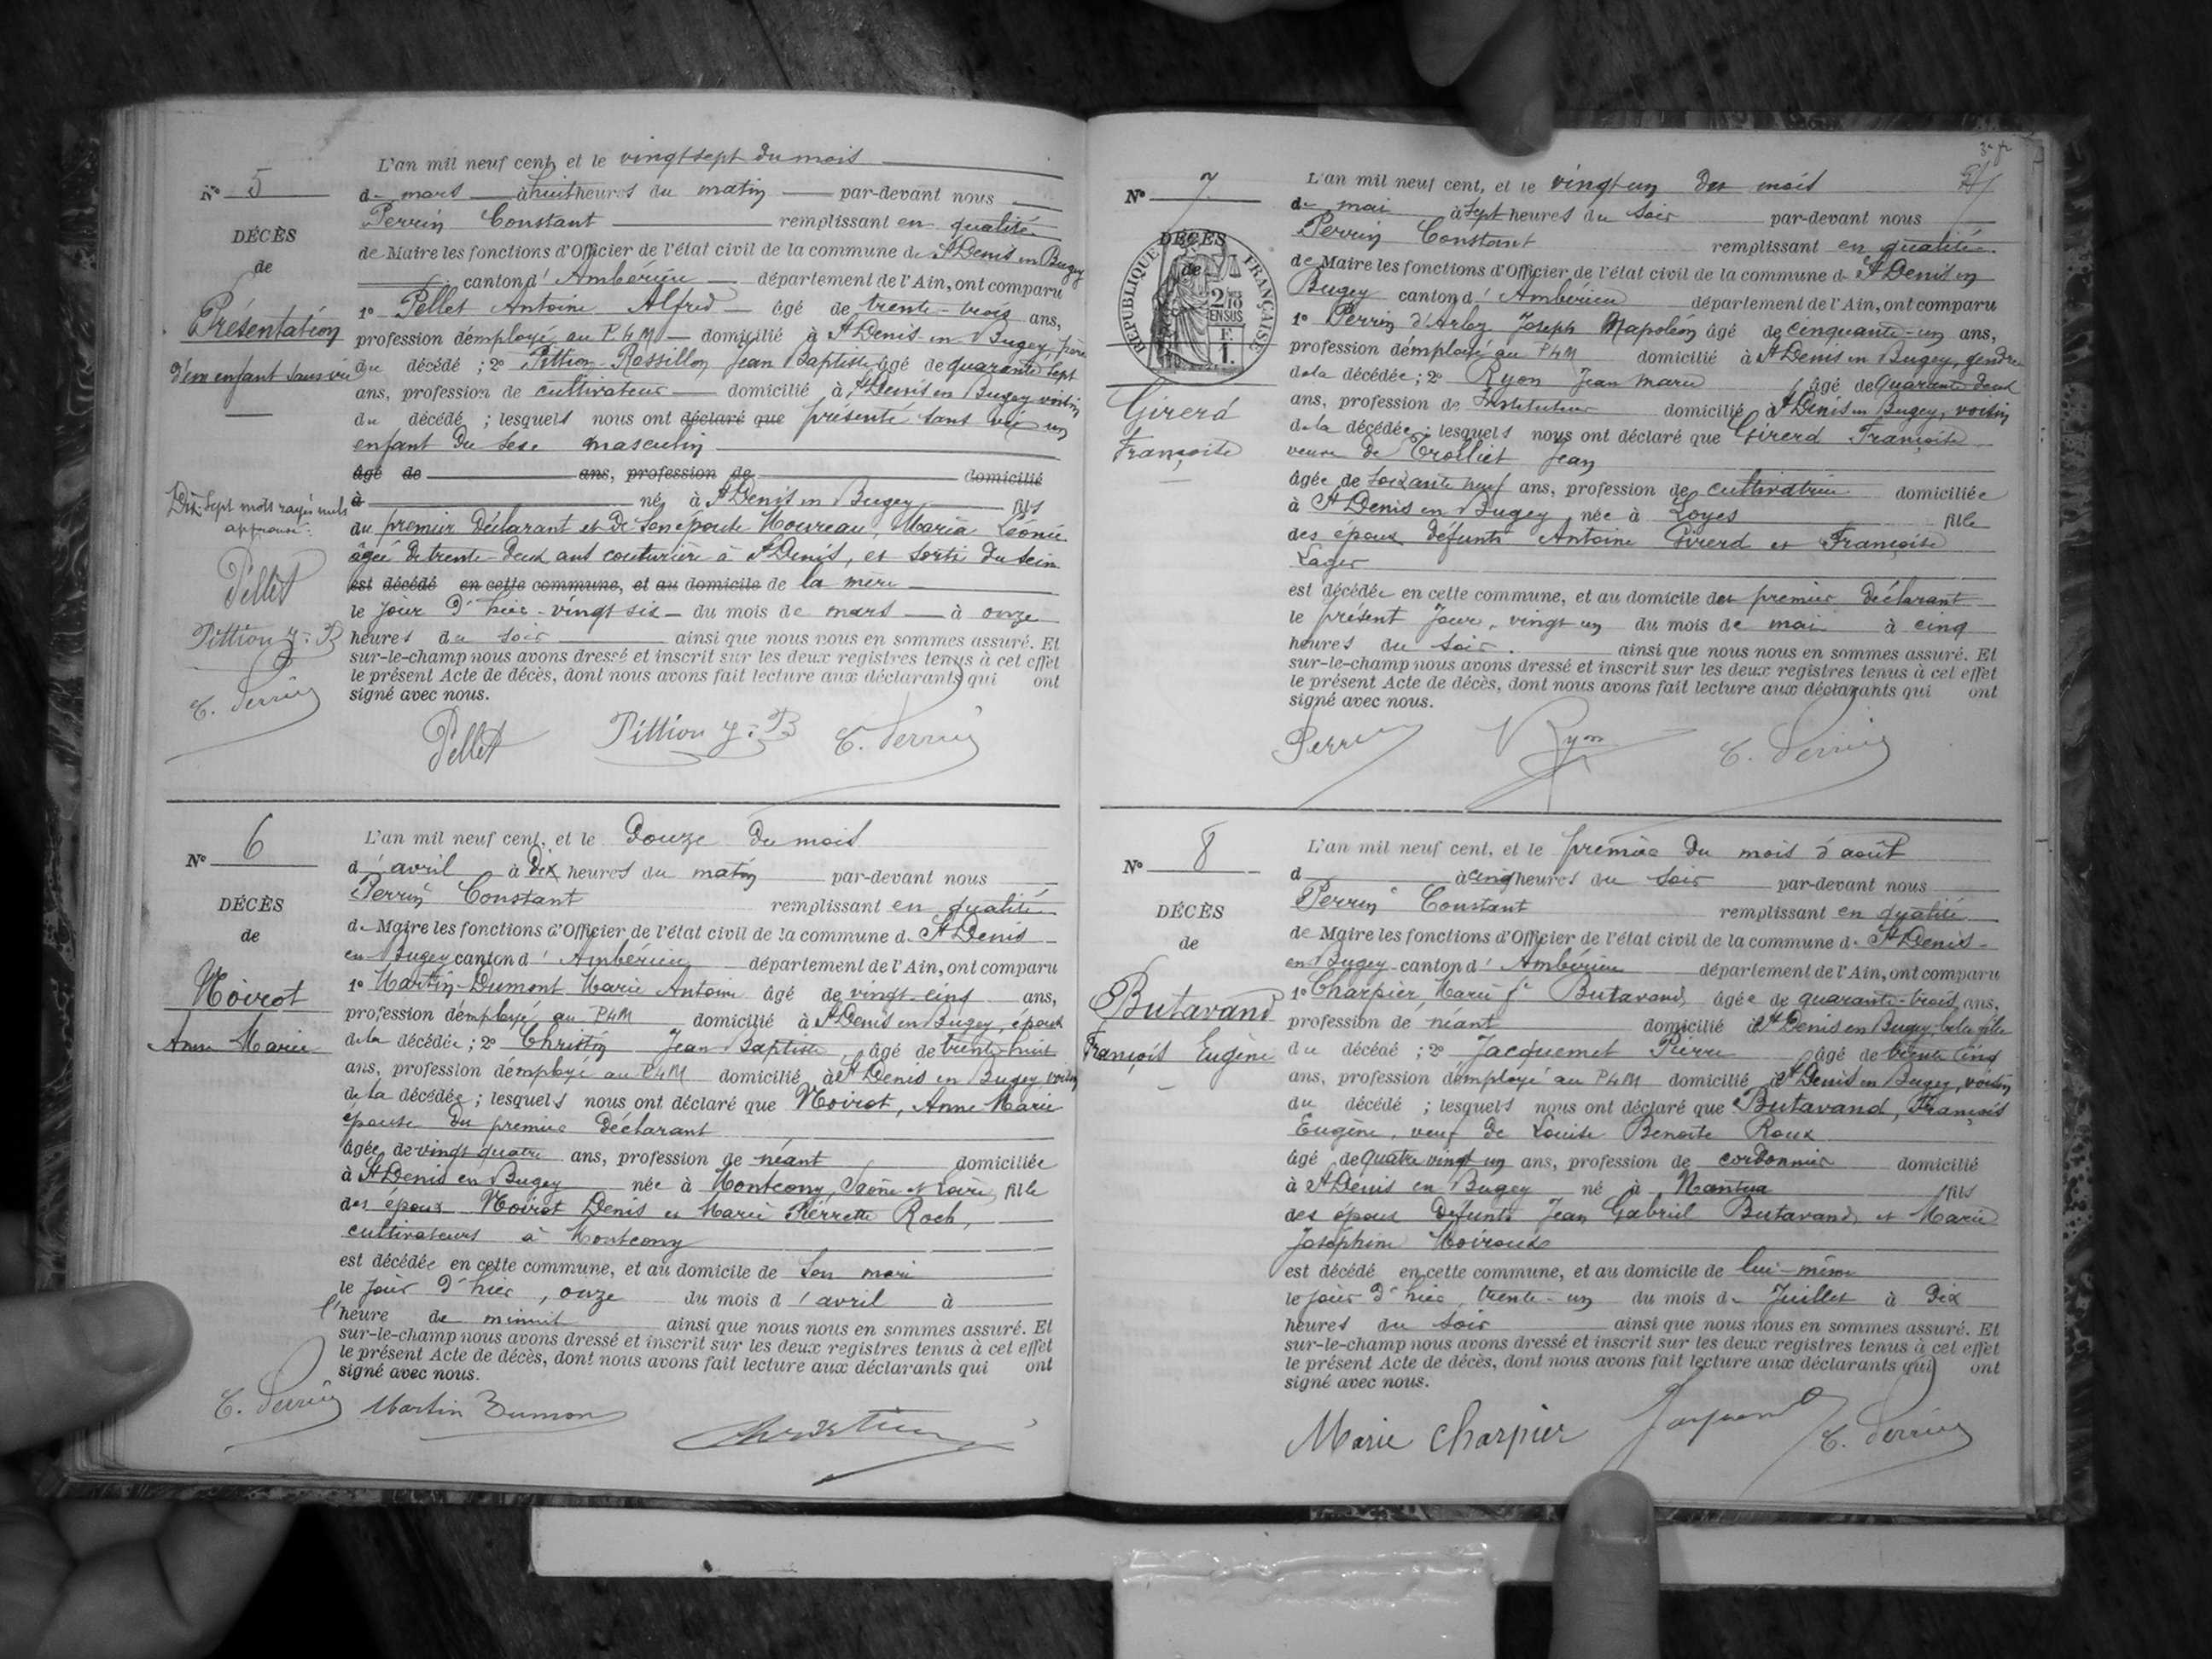 N° 5
DÉCÈS
de
Présentation
d'un enfant sans vie
L'an mil neuf cent, et le vingt sept du mois
de mars à huit heures du matin par-devant nous
Perrin Constant remplissant en qualité
de Maire les fonctions d'Officier de l'état civil de la commune de St Denis en Bugey
canton d'Ambérieu département de l'Ain, ont comparu
1° Pellet Antoine Alfred âgé de trente-trois ans,
profession d'employé au PLM domicilié à St Denis en Bugey, père
du décédé ; 2° Pittion-Rossillon Jean Baptiste âgé de quarante sept
ans, profession de cultivateur domicilié à St Denis en Bugey voisin
du décédé ; lesquels nous ont déclaré que présenté sans vie un
enfant du sexe masculin
âgé de ans, profession de domicilié
à né à St Denis en Bugey fils
du premier déclarant et de son épouse Moureau, Maria Léonie
âgée de trente-deux ans couturière à St Denis, et sorti du sein
est décédé en cette commune, et au domicile de la mère
le jour d'hier - vingt six - du mois de mars à onze
heures du soir ainsi que nous nous en sommes assuré. Et
sur-le-champ nous avons dressé et inscrit sur les deux registres tenus à cet effet
le présent Acte de décès, dont nous avons fait lecture aux déclarants qui ont
signé avec nous.
Dix-sept mots rayés nuls
approuvé :
Pellet
Pittion J : B
C. Perrin
Pellet Pittion J : B C. Perrin
N° 6
DÉCÈS
de
Moirot
Anne Marie
L'an mil neuf cent, et le douze du mois
d'avril à dix heures du matin par-devant nous
Perrin Constant remplissant en qualité
de Maire les fonctions d'Officier de l'état civil de la commune d. St Denis
en Bugey canton d'Ambérieu département de l'Ain, ont comparu
1° Martin-Dumont Marie Antoine âgé de vingt-cinq ans,
profession d'employé au PLM domicilié à St Denis en Bugey, époux
de la décédée ; 2° Christin Jean Baptiste, âgé de trente-huit
ans, profession d'employé au PLM domicilié à St Denis en Bugey voisin
de la décédée ; lesquels nous ont déclaré que Moirot, Anne Marie
épouse du premier déclarant
âgée de vingt quatre ans, profession de néant domiciliée
à St Denis en Bugey née à Montcony, Saône et Loire, fille
des époux Moirot Denis et Marie Pierrette Roch,
cultivateurs à Montcony
est décédée en cette commune, et au domicile de son mari
le jour d'hier, onze du mois d'avril à
l'heure de minuit ainsi que nous nous en sommes assuré. Et
sur-le-champ nous avons dressé et inscrit sur les deux registres tenus à cet effet
le présent Acte de décès, dont nous avons fait lecture aux déclarants qui ont
signé avec nous.
C. Perrin Martin Dumon Christin
N° 7
DÉCÈS
de
RÉPUBLIQUE FRANÇAISE
2/10 EN SUS
F. 1.
Girerd
Françoise
L'an mil neuf cent, et le vingt un du mois
de mai à sept heures du soir par-devant nous
Perrin Constant remplissant en qualité
de Maire les fonctions d'Officier de l'état civil de la commune de St Denis en
Bugey canton d'Ambérieu département de l'Ain, ont comparu
1° Perrin d'Arloz Joseph Napoléon âgé de cinquante-un ans,
profession d'employé au PLM domicilié à St Denis en Bugey, gendre
de la décédée ; 2° Ryon Jean Marie âgé de quarante deux
ans, profession de Instituteur domicilié à St Denis en Bugey, voisin
de la décédée ; lesquels nous ont déclaré que Girerd Françoise
veuve de Trolliet Jean
âgée de soixante neuf ans, profession de cultivatrice domiciliée
à St Denis en Bugey née à Loyes fille
des époux défunts Antoine Girerd et Françoise
Lager
est décédée en cette commune, et au domicile du premier déclarant
le présent jour, vingt un du mois de mai à cinq
heures du soir. ainsi que nous nous en sommes assuré. Et
sur-le-champ nous avons dressé et inscrit sur les deux registres tenus à cet effet
le présent Acte de décès, dont nous avons fait lecture aux déclarants qui ont
signé avec nous.
Perrin Ryon C. Perrin
N° 8
DÉCÈS
de
Butavand
François Eugène
L'an mil neuf cent, et le premier du mois d'août
d à cinq heures du soir par-devant nous
Perrin Constant remplissant en qualité
de Maire les fonctions d'Officier de l'état civil de la commune d. St Denis-
en Bugey canton d'Ambérieu département de l'Ain, ont comparu
1° Charpier, Marie fe Butavand, âgée de quarante-trois ans,
profession de néant domicilié à St Denis en Bugey belle fille
du décédé ; 2° Jacquemet Pierre âgé de trente cinq
ans, profession d'employé au PLM domicilié à St Denis en Bugey, voisin
du décédé ; lesquels nous ont déclaré que Butavand, François
Eugène, veuf de Louise Benoîte Roux
âgé de quatre vingt un ans, profession de cordonnier domicilié
à St Denis en Bugey né à Nantua fils
des époux défunts Jean Gabriel Butavand et Marie
Joséphine Moiroux
est décédé en cette commune, et au domicile de lui-même
le jour d'hier, trente-un du mois de Juillet à dix
heures du soir ainsi que nous nous en sommes assuré. Et
sur-le-champ nous avons dressé et inscrit sur les deux registres tenus à cet effet
le présent Acte de décès, dont nous avons fait lecture aux déclarants qui ont
signé avec nous.
Marie Charpier Jacquemet C. Perrin